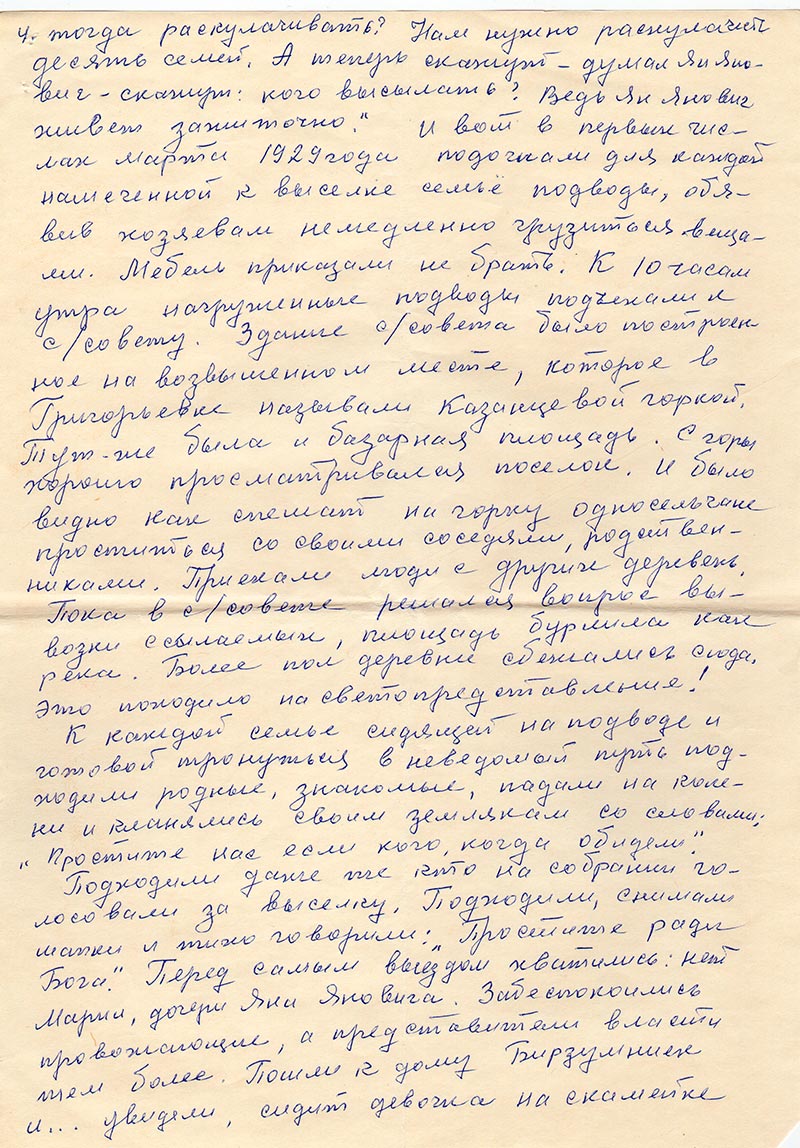 4. тогда раскулачивать? Нам нужно раскулачить
десять семей. А теперь скажут – думал Ян Яно-
вич – скажут: кого высылать? Ведь Ян Янович
живет зажиточно." И вот в первых чис-
лах марта 1929 года подогнали для каждой
намеченной к выселке семье подводы, обя-
вив хозяевам немедленно грузиться веща-
ми. Мебель приказали не брать. К 10 часам
утра нагруженные подводы подъехали к
с/совету. Здание с/совета было построен-
ное на возвышенном месте, которое в
Григорьевке называли Казанцевой горкой.
Тут-же была и базарная площадь. С горы
хорошо просматривался поселок. И было
видно как спешат на горку односельчане
проститься со своими соседями, родствен-
никами. Приехали люди с других деревень.
Пока в с/совете решался вопрос вы-
возки ссылаемых, площадь бурлила как
река. Более пол деревни сбежались сюда.
Это походило на светопредставление!
К каждой семье сидящей на подводе и
готовой тронуться в неведомый путь под-
ходили родные, знакомые, падали на коле-
ни и кланялись своим землякам со словами:
„Простите нас если кого, когда обидели".
Подходили даже те кто на собрании го-
лосовали за выселку. Подходили, снимали
шапки и тихо говорили: „Простите ради
Бога." Перед самым выездом хватились: нет
Марии, дочери Яна Яновича. Забеспокоились
провожающие, а представители власти
тем более. Пошли к дому Бирзумниек
и... увидели, сидит девочка на скамейке